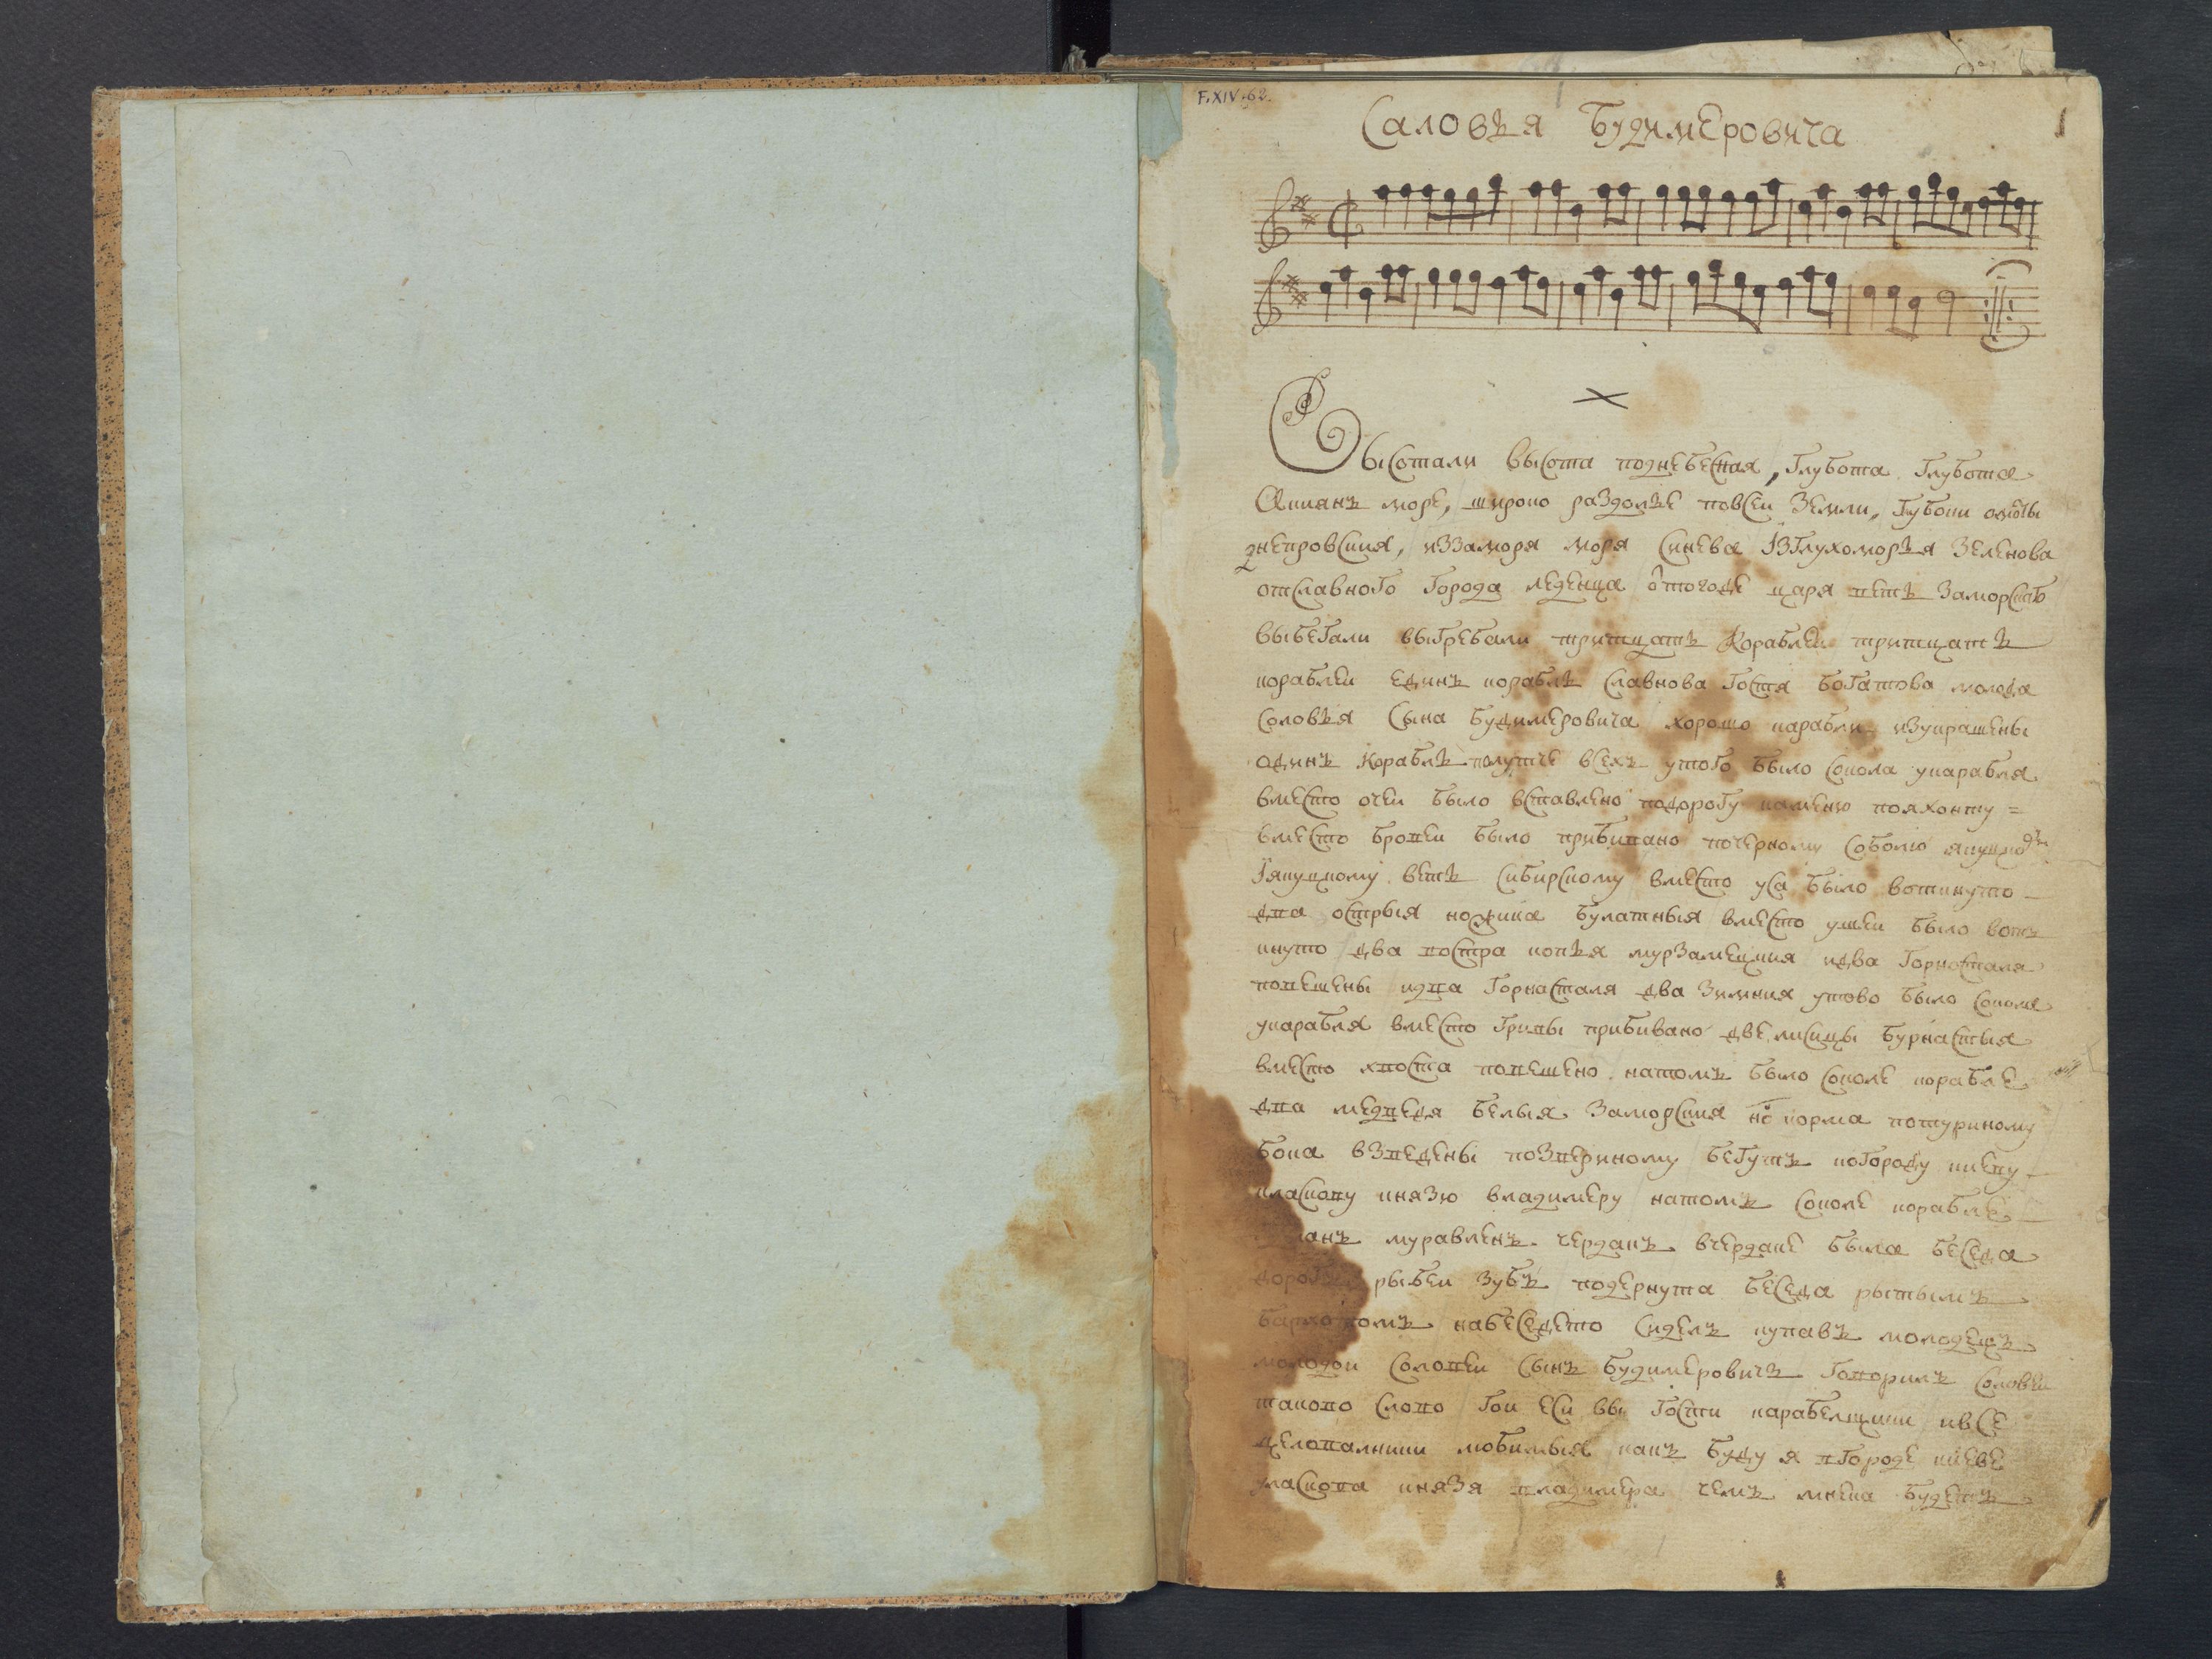 F.XIV.62.
1
Саловья Будимеровича
Высотали высота поднебесная, глубота глубота
акиянъ море, широко раздолье повсеи земли, глубоки омоты
днепровския, иззаморя моря синева изглухоморья зеленова
отславного города леденца оттогоде царя веть заморскаго
выбегали выгребали тритцать кораблеи тритцать
кораблеи единъ корабль славнова гостя богатова молода
соловья сына будимеровича хорошо карабли изукрашены
одинъ корабль полутче всехъ утого было сокола укарабля
вместо очеи было вставлено подорогу каменю пояхонту =
вместо бровеи было прибивано почерному соболю якуцкому
Iякуцкому веть сибирскому вместо уса было воткнуто
два острыя ножика булатныя вместо ушеи было воть
кнуто два востра копья мурзамецкия идва горносталя
повешены идва горнасталя два зимния утово было сокола
укарабля вместо гривы прибивано две лисицы бурнастыя
вместо хвоста повешено натомъ было соколе корабле
два медведя белыя заморския носъ корма потуриному
бока взведены позвериному бегутъ когороду киеву
класкову князю владимеру натомъ соколе корабле
муравленъ чердакъ вчердаке была беседа
дорогъ рыбеи зубъ подернута беседа рытымъ
бархотомъ набеседето сиделъ купавъ молодецъ
молодои соловеи сынъ будимеровичъ говорилъ соловеи
таково слово гои еси вы гости карабелщики ивсе
целовалники любимыя какъ буду я вгороде киеве
уласкова князя владимера чемъ мнека будетъ